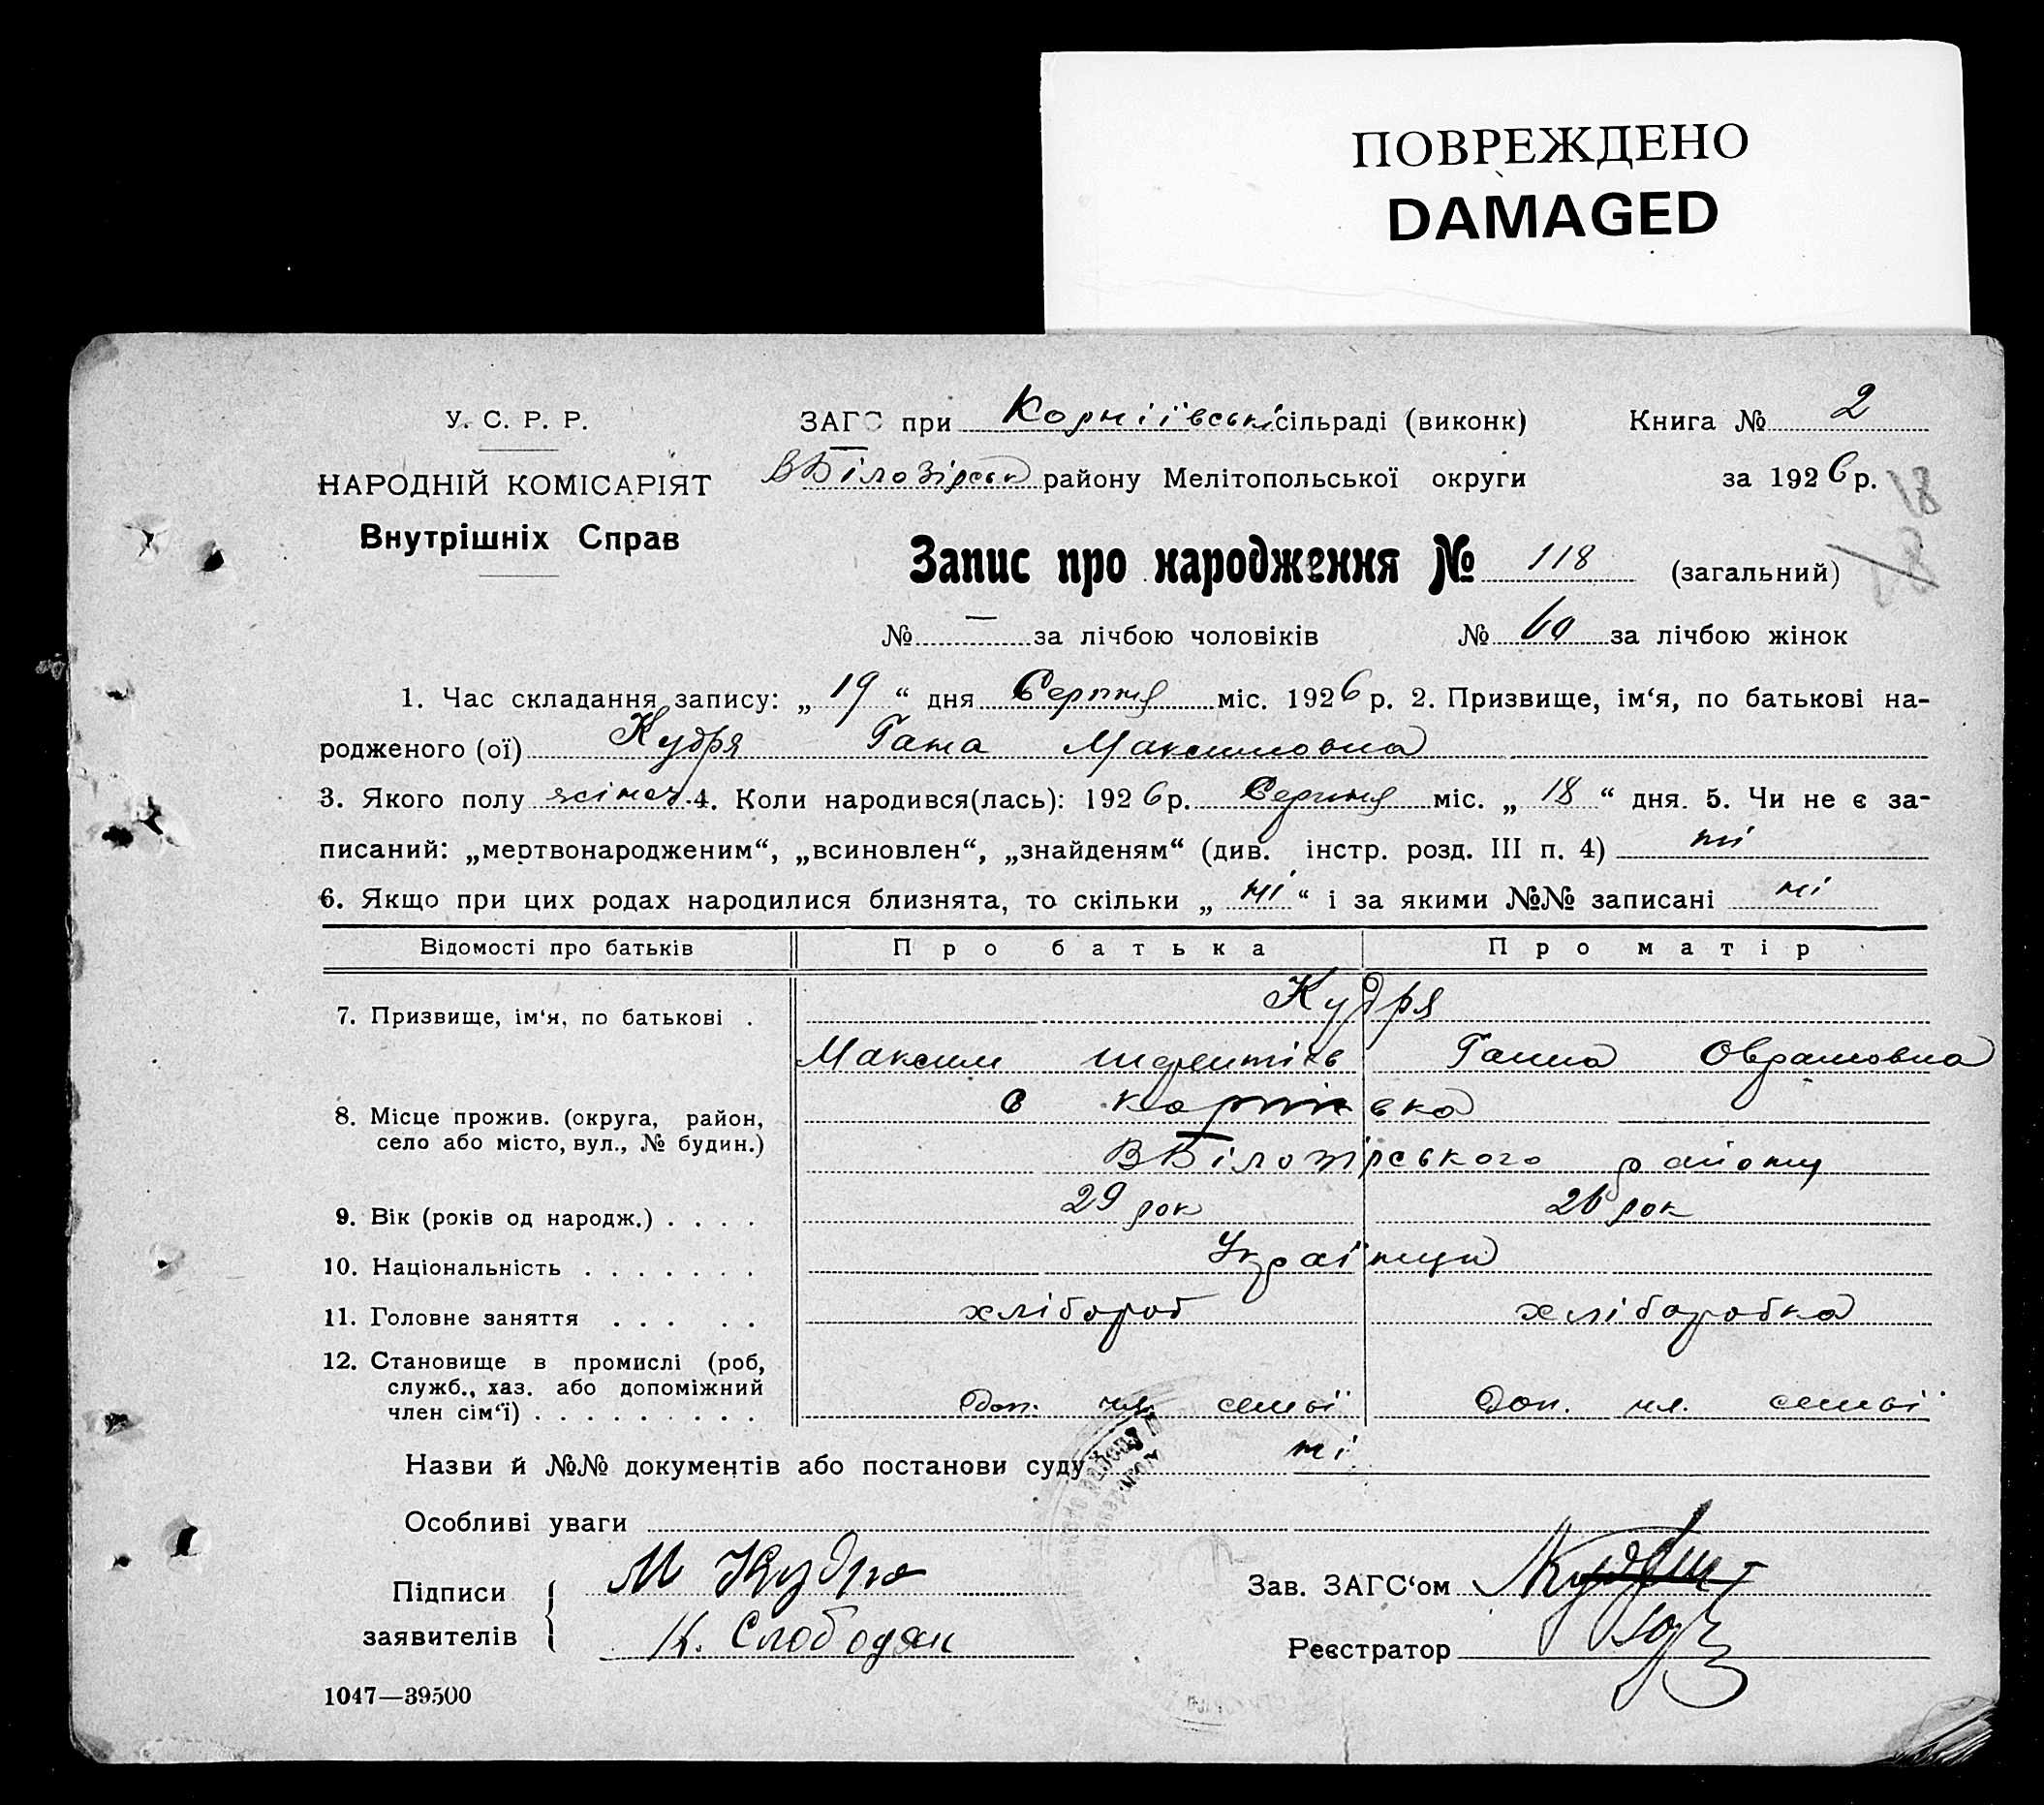 ПОВРЕЖДЕНО
DAMAGED
У. С. Р. Р.
НАРОДНІЙ КОМІСАРІЯТ
Внутрішніх Справ
ЗАГС при Корніївські сільраді (виконк)
ВБілозірськ району Мелітопольської округи
Книга № 2
за 1926 р.
81
Запис про народження № 118 (загальний)
№ — за лічбою чоловіків № 60 за лічбою жінок
1. Час складання запису: „ 19 “ дня Серпня міс. 1926 р. 2. Призвище, ім‘я, по батькові на-
родженого (ої) Кудря Гана Максимовна
3. Якого полу жіноч. 4. Коли народився(лась): 1926 р. Серпня міс. „ 18 “ дня. 5. Чи не є за-
писаний: „мертвонародженим“, „всиновлен“, „знайденям“ (див. інстр. розд. III п. 4) ні
6. Якщо при цих родах народилися близнята, то скільки „ ні “ і за якими №№ записані ні
Відомості про батьків Про батька Про матір
7. Призвище, ім‘я, по батькові . Кудря
Максим Ганна Оврамовна
8. Місце прожив. (округа, район,
село або місто, вул., № будин.)
с Корніівка
ВБілозірського району
9. Вік (років од народж.) . . . . 29 рок 26 рок
10. Національність . . . . . . . Українци
11. Головне заняття . . . . . хлібороб хліборобка
12. Становище в промислі (роб,
служб., хаз. або допоміжний
член сім‘ї) . . . . . . . . . Доп. чл. семьї Доп. чл. семьї
Назви й №№ документів або постанови суду ні
Особливі уваги
Підписи
заявителів
М Кудря
К. Слободян
Зав. ЗАГС‘ом
Реєстратор
1047—39500